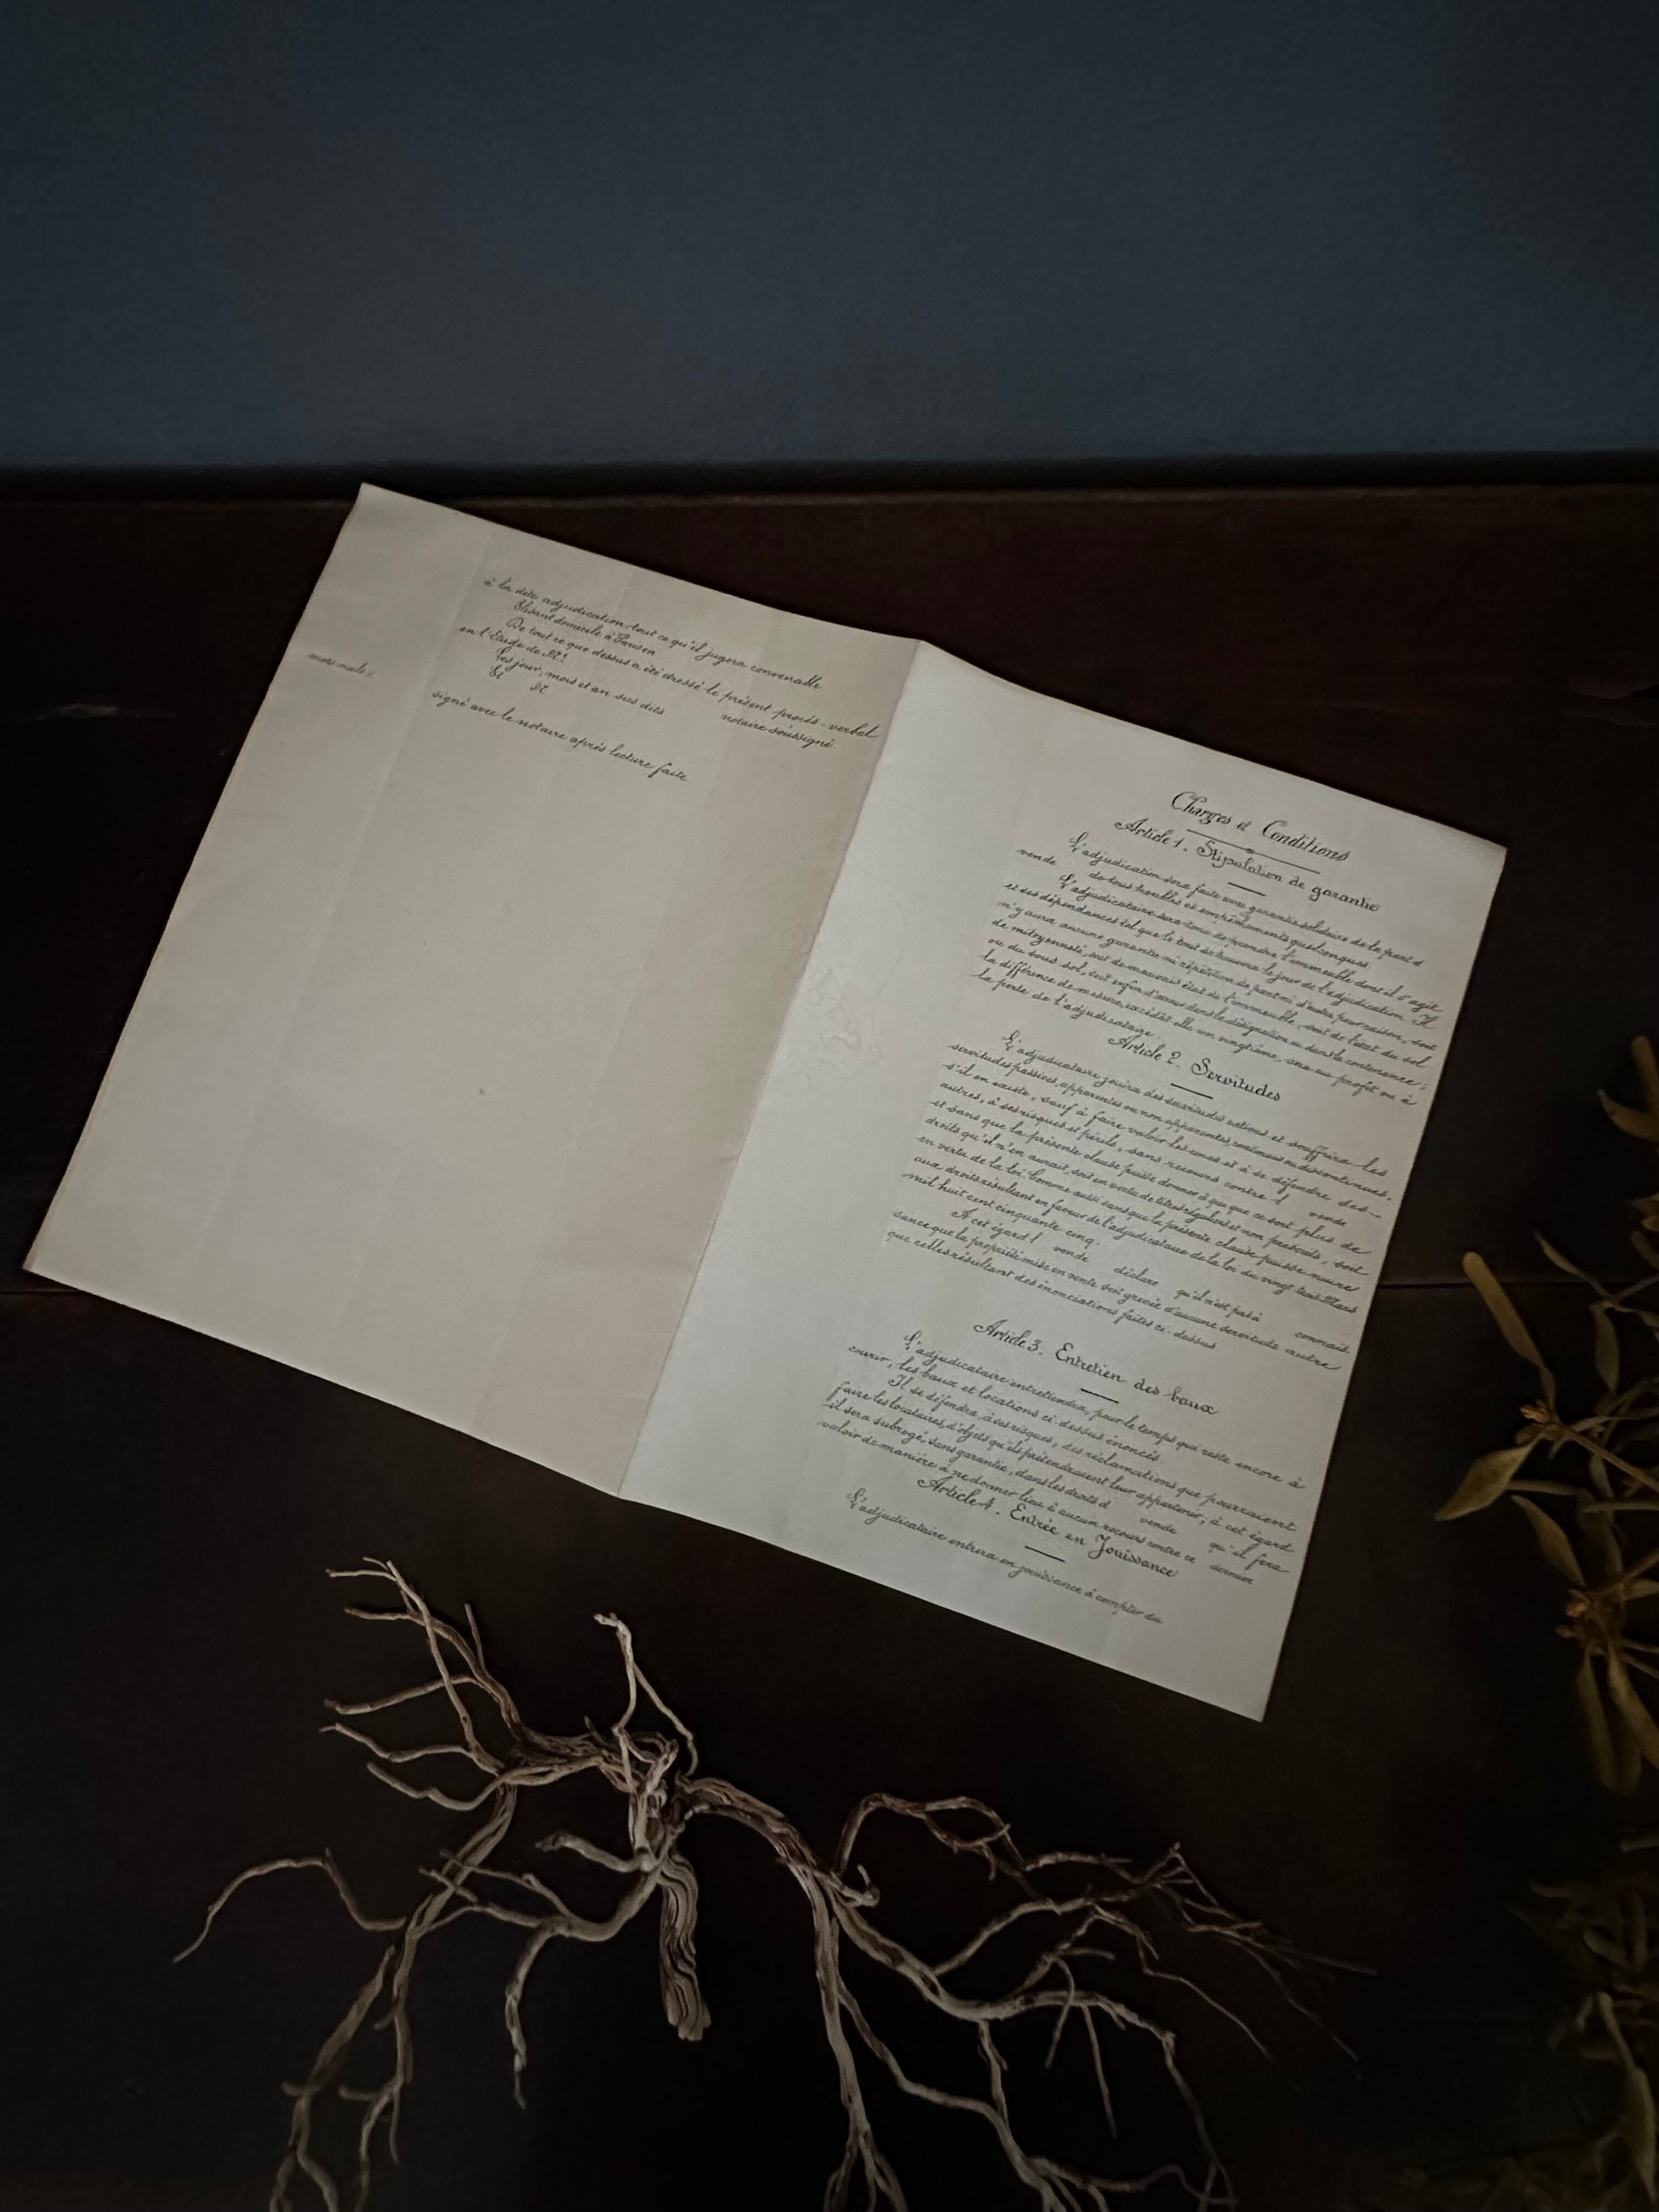 à la dite adjudication tout ce qu'il jugera convenable
Elisant domicile à Paris en
De tout ce que dessus a été dressé le présent procès-verbal
en l'Etude de Me. notaire soussigné
Les jour, mois et an sus dits
Et M
signé avec le notaire après lecture faite
mots nuls
Charges et Conditions
Article 1. Stipulation de garantie
L'adjudication sera faite avec garantie solidaire de la part d
vende de tous troubles et empêchements quelconques
L'adjudicataire sera tenu de prendre l'immeuble dont il s'agit
et ses dépendances tel que le tout se trouvera le jour de l'adjudication. Il
n'y aura aucune garantie ni répétition de part ni d'autre pour raison, soit
de mitoyenneté, soit de mauvais état de l'immeuble, soit de l'état du sol
ou du sous-sol, soit enfin d'erreur dans la désignation ou dans la contenance;
la différence de mesure, excédât-elle un vingtième, sera au profit ou à
la perte de l'adjudicataire.
Article 2. Servitudes
L'adjudicataire jouira des servitudes actives et souffrira les
servitudes passives, apparentes ou non apparentes, continues ou discontinues,
s'il en existe, sauf à faire valoir les unes et à se défendre des
autres, à ses risques et périls, sans recours contre l vende
et sans que la présente clause puisse donner à qui que ce soit plus de
droits qu'il n'en aurait, soit en vertu de titres réguliers et non prescrits, soit
en vertu de la loi. Comme aussi sans que la présente clause puisse nuire
aux droits résultant en faveur de l'adjudicataire de la loi du vingt-trois Mars
mil huit cent cinquante cinq.
A cet égard l vende déclare qu'il n'est pas à connais-
sance que la propriété mise en vente soit grevée d'aucune servitude autre
que celles résultant des énonciations faites ci-dessus
Article 3. Entretien des baux
L'adjudicataire entretiendra, pour le temps qui reste encore à
courir, les baux et locations ci-dessus énoncés
Il se défendra, à ses risques, des réclamations que pourraient
faire les locataires, d'objets qu'ils prétendraient leur appartenir; à cet égard
il sera subrogé, sans garantie, dans les droits d vende qu'il fera
valoir de manière à ne donner lieu à aucun recours contre ce dernier
Article 4. Entrée en Jouissance
L'adjudicataire entrera en jouissance à compter du